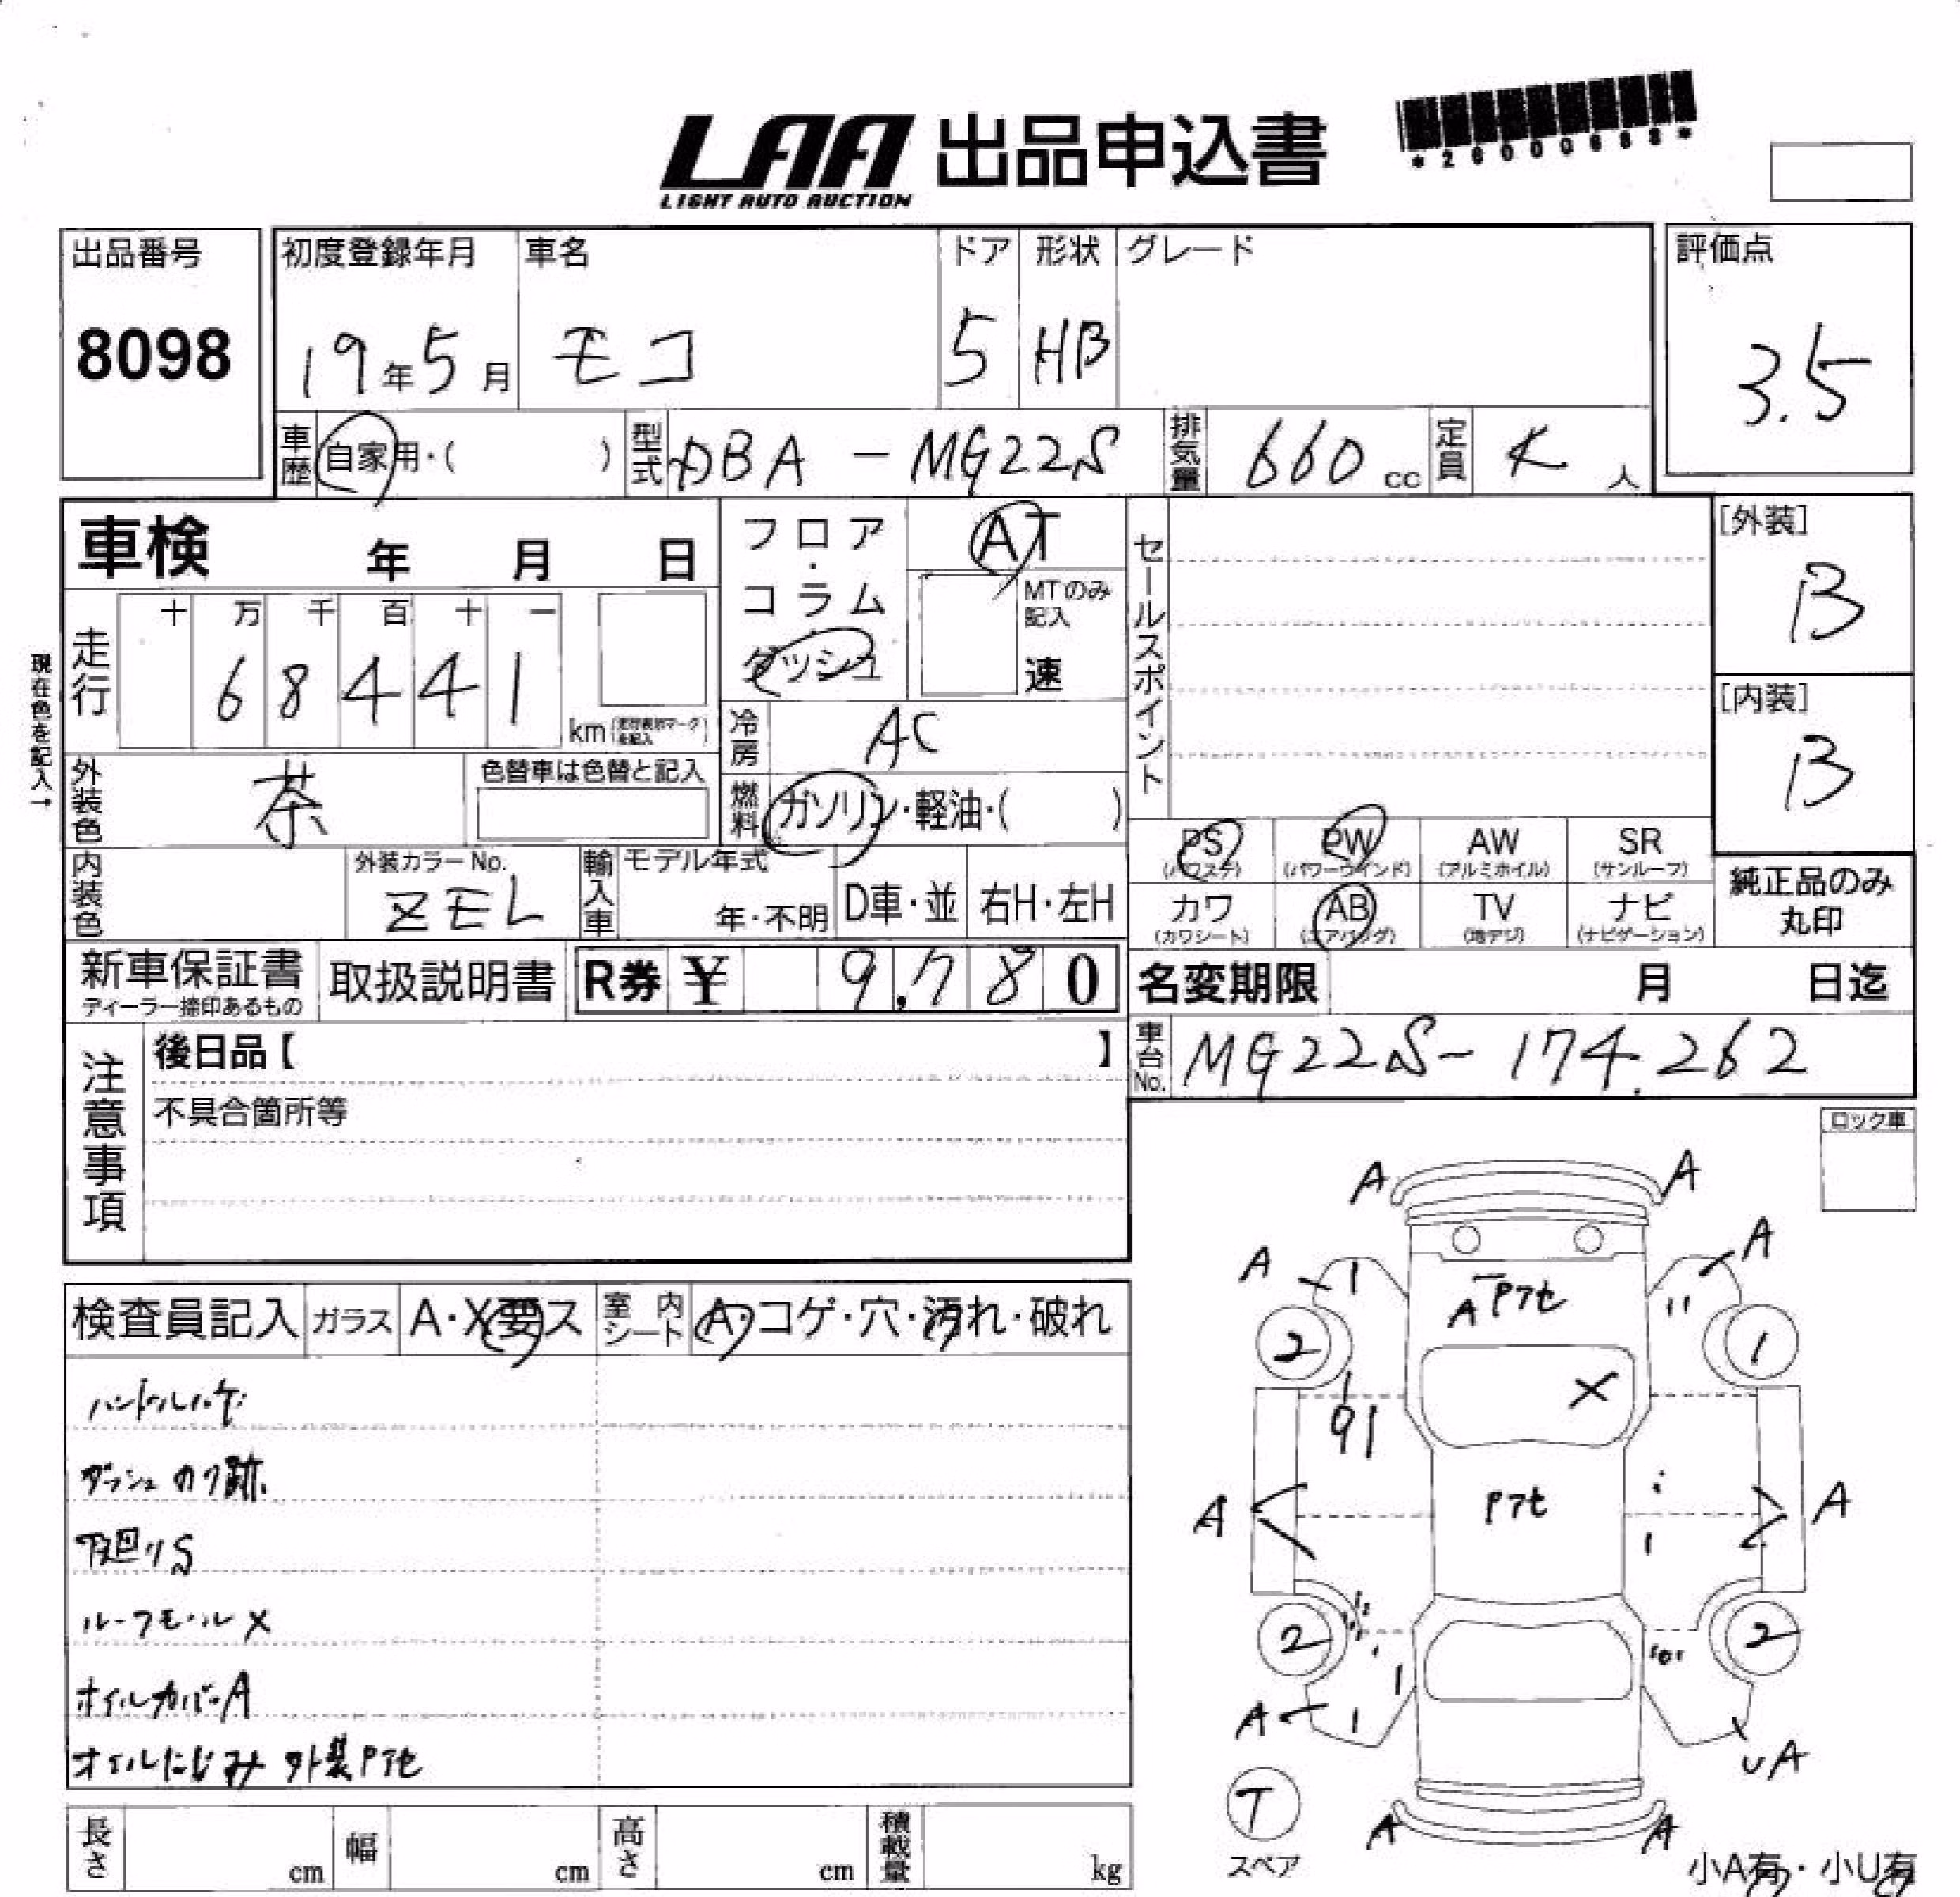 LAA 出品申込書
LIGHT AUTO AUCTION
出品番号 初度登録年月 車名 ドア 形状 グレード 評価点
8098 19年5月 モコ 5 HB 3.5
車歴 自家用・( ) 型式 DBA-MG22S 排気量 660 cc 定員 K 人
車検 年 月 日
フロア・コラム・ダッシュ AT
MTのみ記入 速
セールスポイント
[外装] B
[内装] B
現在色を記入→
走行 十 万 千 百 十 一
6 8 4 4 1 km
冷房 AC
外装色 茶 色替車は色替と記入
燃料 ガソリン・軽油・( )
PS (パワステ) PW (パワーウインド) AW (アルミホイル) SR (サンルーフ)
カワ (カワシート) AB (エアバッグ) TV (地デジ) ナビ (ナビゲーション)
純正品のみ丸印
内装色 外装カラーNo. ZEL 輸入車 モデル年式 年・不明 D車・並 右H・左H
新車保証書 取扱説明書 R券 ¥ 9,780
名変期限 月 日迄
車台No. MG22S-174.262
注意事項
後日品【 】
不具合箇所等
ロック車
検査員記入 ガラス A・X要ス 室内シート A・コゲ・穴・汚れ・破れ
ハンドルハゲ
ダッシュカワ跡
下廻りS
ルーフモールX
ホイルカバーA
オイルにじみ 外装Pアセ
A A
A 1 A
A Pアセ
2 1
X
91
A Pアセ A
2 2
A 1 1 UA
T
スペア
A A
小A有・小U有
長さ cm 幅 cm 高さ cm 積載量 kg